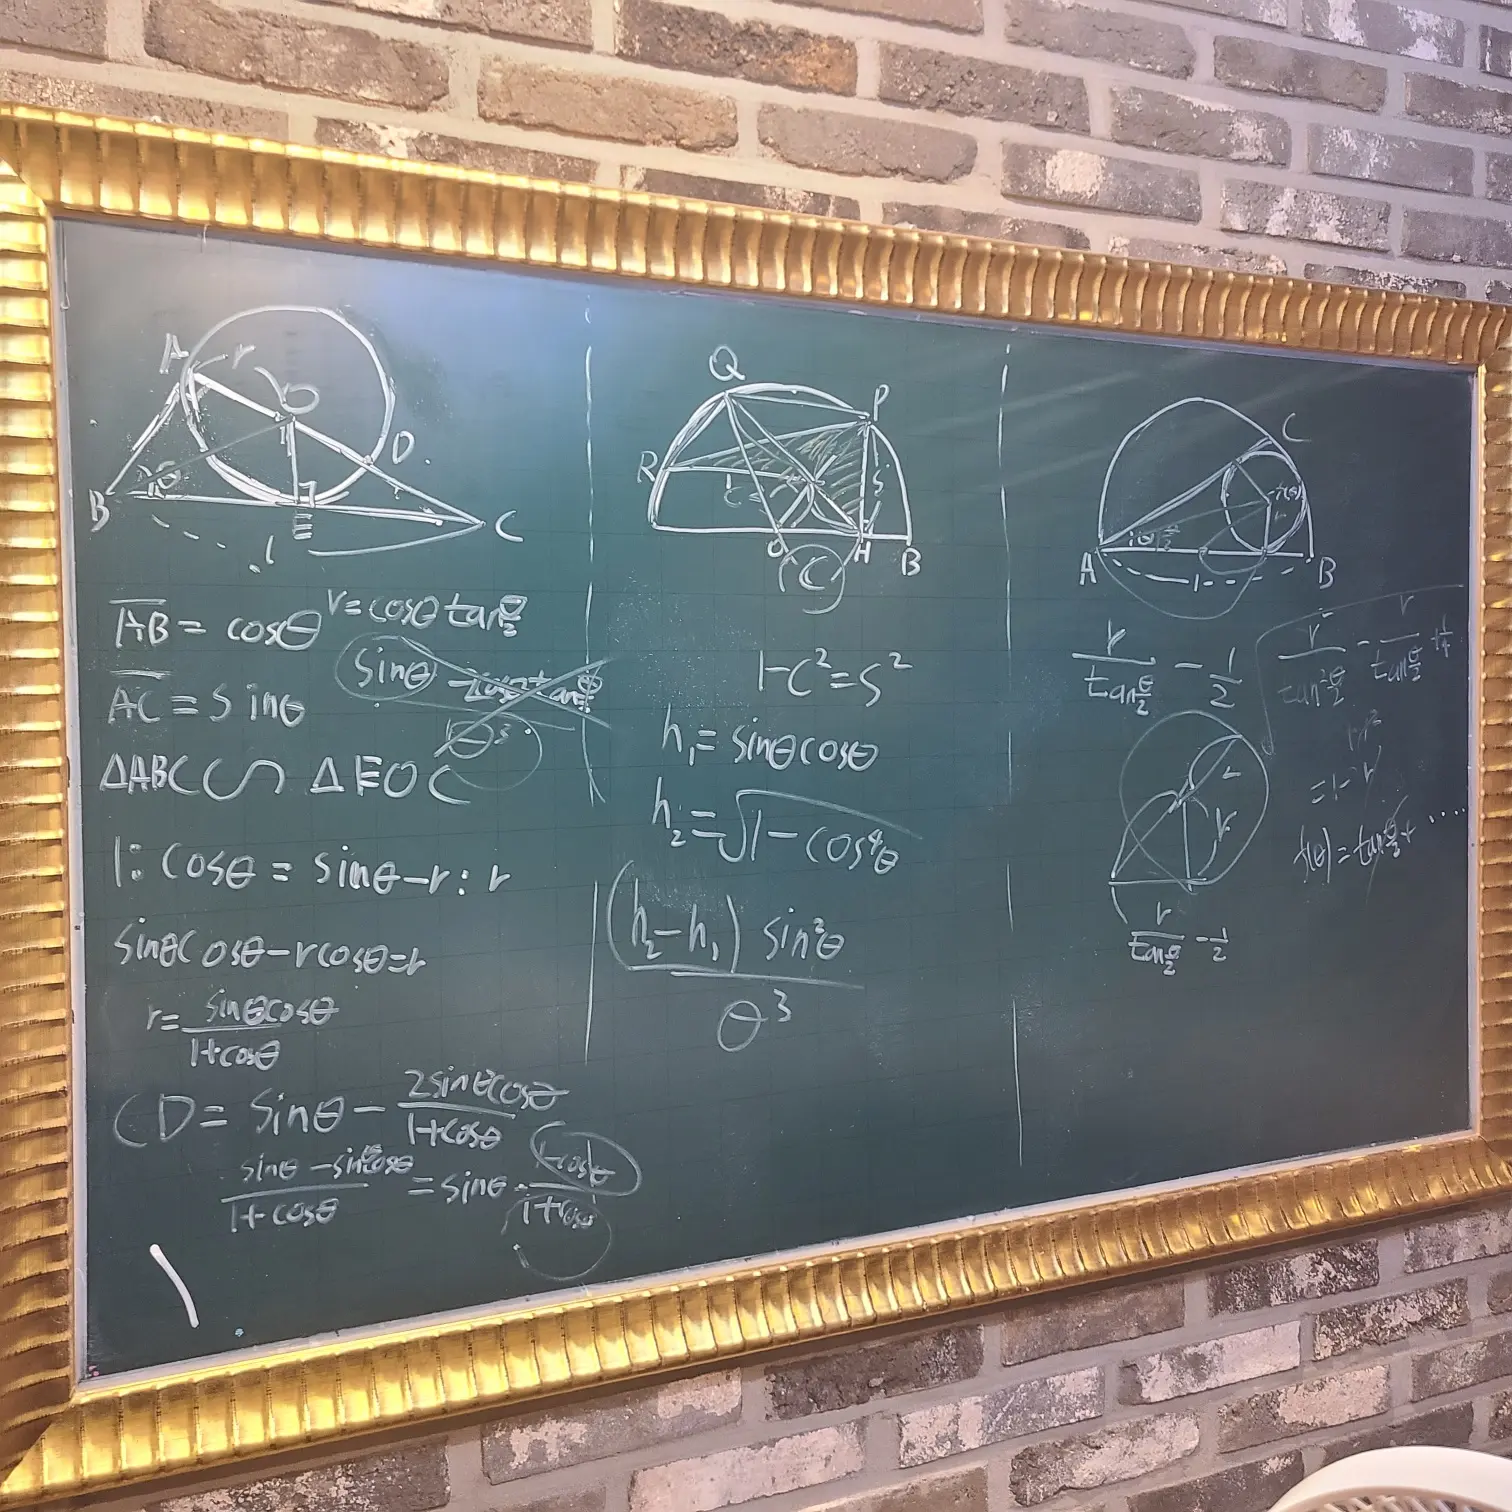 A r O
D
B θ E C
1
AB = cosθ r=cosθ tan θ/2
sinθ
AC = sinθ
θ³
ΔABC ∽ ΔEOC
1: cosθ = sinθ-r : r
sinθcosθ-rcosθ=r
r= sinθcosθ / 1+cosθ
CD= sinθ - 2sinθcosθ / 1+cosθ
sinθ-sinθcosθ / 1+cosθ = sinθ · 1-cosθ / 1+cosθ
Q P
R S
C
O H B
C
1-C²=S²
h₁= sinθcosθ
h₂=√1-cos⁴θ
(h₂-h₁) sin²θ / θ³
C
r
A 1 B
r / tan θ/2 - 1/2
√ r² / tan² θ/2 - r / tan θ/2 + 1/4
r
= 1/2 - r
f(θ)=tan θ/2 + ....
r / tan θ/2 - 1/2